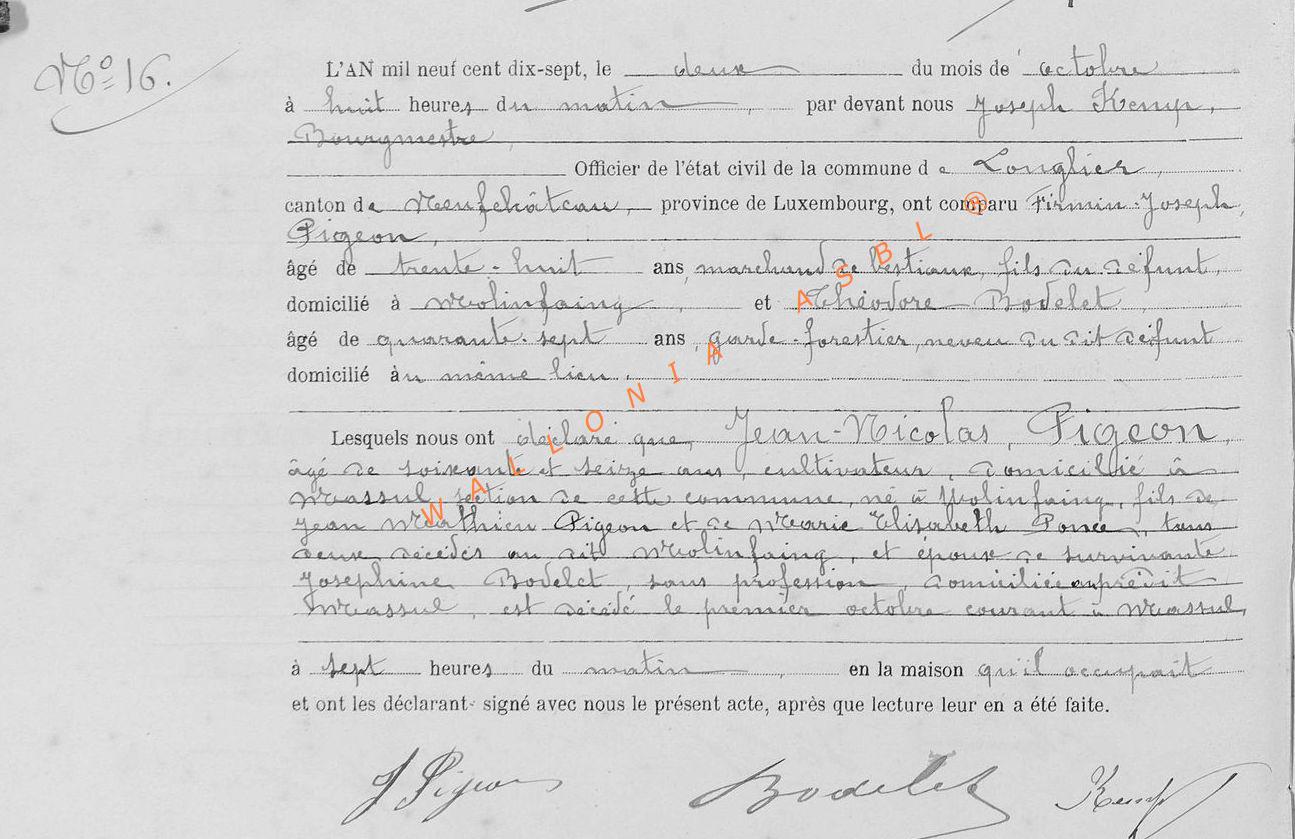 Nº 16.
L'AN mil neuf cent dix-sept, le deux du mois de octobre
à huit heures du matin, par devant nous Joseph Kemp,
Bourgmestre,
Officier de l'état civil de la commune de Longlier,
canton de Neufchâteau, province de Luxembourg, ont comparu Firmin-Joseph,
Pigeon,
âgé de trente-huit ans, marchand de bestiaux, fils du défunt,
domicilié à Molinfaing, et Théodore Bodelet,
âgé de quarante-sept ans, garde-forestier, neveu du dit défunt
domicilié au même lieu.
Lesquels nous ont déclaré que, Jean-Nicolas, Pigeon,
âgé de soixante et seize ans, cultivateur, domicilié à
Massul, section de cette commune, né à Molinfaing, fils de
Jean Mathieu Pigeon et de Marie Elisabeth Ponce, tous
deux décédés au dit Molinfaing, et époux de survivante
Josephine Bodelet, sans profession, domiciliée au prédit
Massul, est décédé le premier octobre courant à Massul,
à sept heures du matin, en la maison qu'il occupait
et ont les déclarant signé avec nous le présent acte, après que lecture leur en a été faite.
J Pigeon Bodelet Kemp
WALLONIA ASBL ®